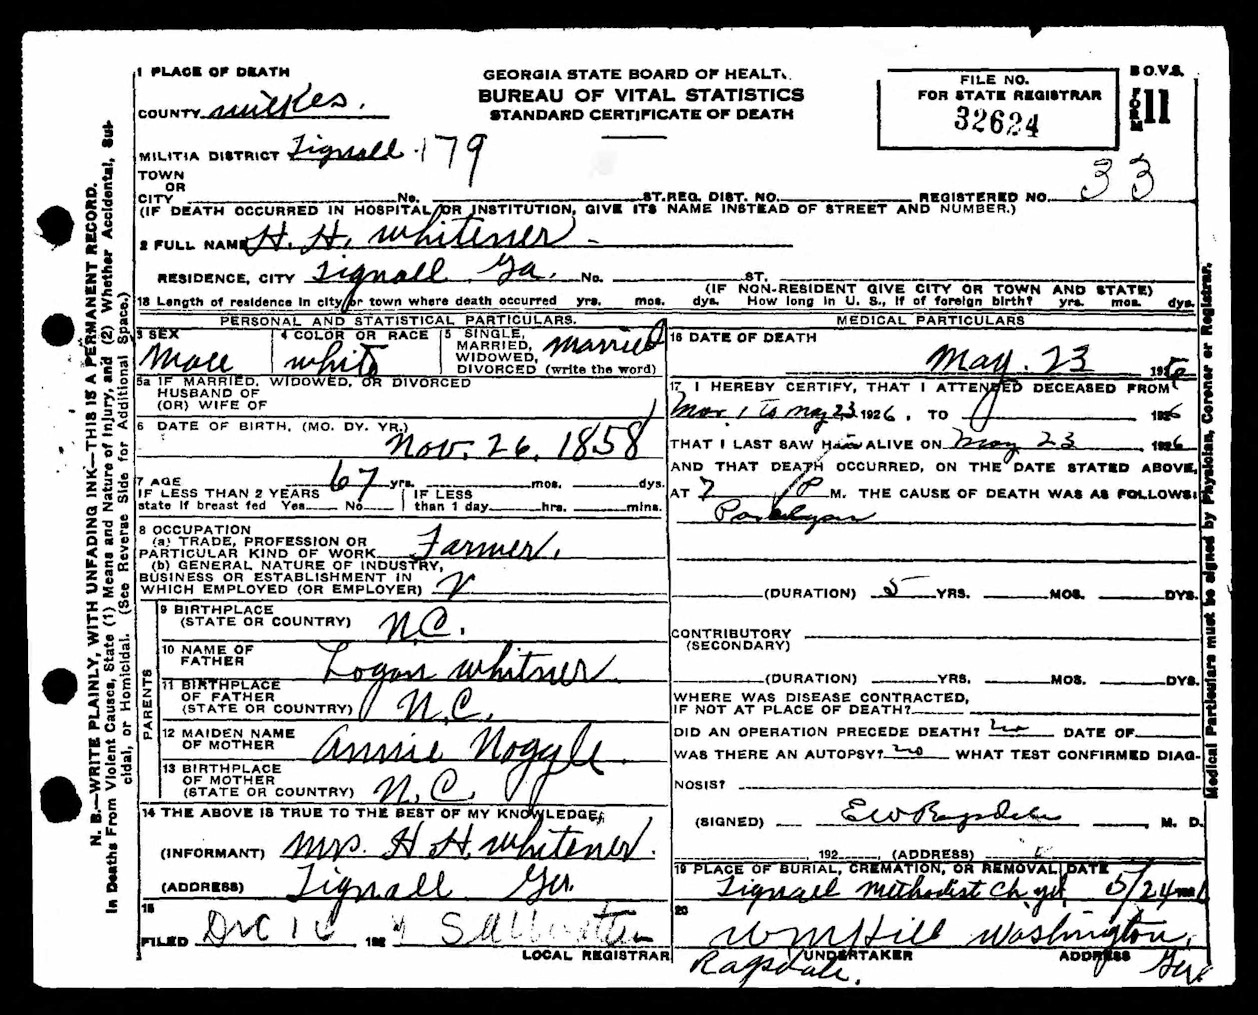 1 PLACE OF DEATH
COUNTY Wilkes.
GEORGIA STATE BOARD OF HEALTH
BUREAU OF VITAL STATISTICS
STANDARD CERTIFICATE OF DEATH
FILE NO.
FOR STATE REGISTRAR
32624
B O.V.S.
FORM 11
MILITIA DISTRICT Tignall 179
TOWN
OR
CITY No. ST. REG. DIST. NO. REGISTERED NO. 33
(IF DEATH OCCURRED IN HOSPITAL OR INSTITUTION, GIVE ITS NAME INSTEAD OF STREET AND NUMBER.)
2 FULL NAME H. H. Whitener
RESIDENCE, CITY Tignall Ga. No. ST.
(IF NON-RESIDENT GIVE CITY OR TOWN AND STATE)
18 Length of residence in city or town where death occurred yrs. mos. dys. How long in U. S., if of foreign birth? yrs. mos. dys.
PERSONAL AND STATISTICAL PARTICULARS.
3 SEX Male
4 COLOR OR RACE White
5 SINGLE, MARRIED, WIDOWED, DIVORCED (write the word) Married
5a IF MARRIED, WIDOWED, OR DIVORCED
HUSBAND OF
(OR) WIFE OF
6 DATE OF BIRTH, (MO. DY. YR.)
Nov. 26, 1858
7 AGE 67 yrs. mos. dys.
IF LESS THAN 2 YEARS
state if breast fed Yes No
IF LESS
than 1 day hrs. mins.
8 OCCUPATION
(a) TRADE, PROFESSION OR
PARTICULAR KIND OF WORK Farmer.
(b) GENERAL NATURE OF INDUSTRY,
BUSINESS OR ESTABLISHMENT IN
WHICH EMPLOYED (OR EMPLOYER)
PARENTS
9 BIRTHPLACE
(STATE OR COUNTRY) N.C.
10 NAME OF
FATHER Logan Whitner
11 BIRTHPLACE
OF FATHER
(STATE OR COUNTRY) N.C.
12 MAIDEN NAME
OF MOTHER Annie Noggle
13 BIRTHPLACE
OF MOTHER
(STATE OR COUNTRY) N.C.
14 THE ABOVE IS TRUE TO THE BEST OF MY KNOWLEDGE,
(INFORMANT) Mrs. H H. Whitener.
(ADDRESS) Tignall Ga.
15
FILED 192
LOCAL REGISTRAR
MEDICAL PARTICULARS
16 DATE OF DEATH
May. 23 1926
17 I HEREBY CERTIFY, THAT I ATTENDED DECEASED FROM
Mar. 1 to May 23 1926, TO 1926
THAT I LAST SAW Him ALIVE ON May 23 1926
AND THAT DEATH OCCURRED, ON THE DATE STATED ABOVE,
AT 7 P M. THE CAUSE OF DEATH WAS AS FOLLOWS:
(DURATION) 5 YRS. MOS. DYS.
CONTRIBUTORY
(SECONDARY)
(DURATION) YRS. MOS. DYS.
WHERE WAS DISEASE CONTRACTED,
IF NOT AT PLACE OF DEATH?
DID AN OPERATION PRECEDE DEATH? no DATE OF
WAS THERE AN AUTOPSY? no WHAT TEST CONFIRMED DIAG-
NOSIS?
(SIGNED) E W Ragsdale M. D.
192 , (ADDRESS)
19 PLACE OF BURIAL, CREMATION, OR REMOVAL DATE
Tignall Methodist Ch. yd. 5/24
20 Wm Hill Washington,
UNDERTAKER ADDRESS Ga.
Ragsdale.
N. B.—WRITE PLAINLY, WITH UNFADING INK—THIS IS A PERMANENT RECORD.
In Deaths From Violent Causes, State (1) Means and Nature of Injury, and (2) Whether Accidental, Sui-
cidal, or Homicidal. (See Reverse Side for Additional Space.)
Medical Particulars must be signed by Physician, Coroner or Registrar.